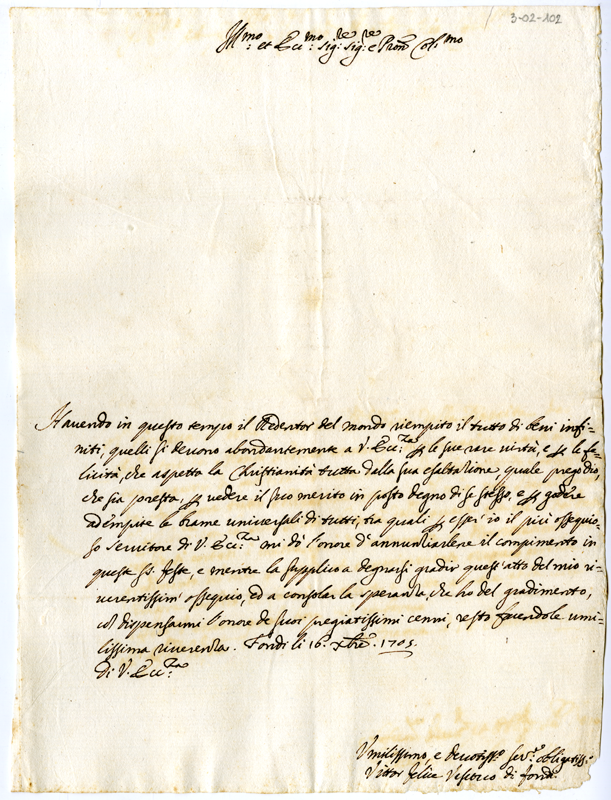 3-02-102
Ill.mo et Ecc.mo Sig.re Sig.re e Pron Col.mo
Havendo in questo tempo il Redentor del mondo riempito il tutto di beni infi-
niti, quelli si devono abondantemente a V. Ecc.za per le sue rare virtù, e per le fe-
licità, che aspetta la Christianità tutta dalla sua esaltazione, quale pregodio,
che sia presta, per vedere il suo merito in posto degno di se stesso, e per godere
adempite le brame universali di tutti, tra quali per esser io il più ossequio-
so servitore di V. Ecc.za mi dò l'onore d'annuntiarlene il compimento in
queste S.e feste, e mentre la supplico a degnarsi gradir quest'atto del mio ri-
verentissim' ossequio, ed a consolar la speranza, che ho del gradimento,
col dispensarmi l'onore de suoi pregiatissimi cenni, resto facendole umi-
lissima riverenza. Fondi li 16. Xbre. 1705.
Di V. Ecc.za
Umilissimo, e devotiss.o ser.re obligatiss.o
Vittor Felice Vescovo di Fondi